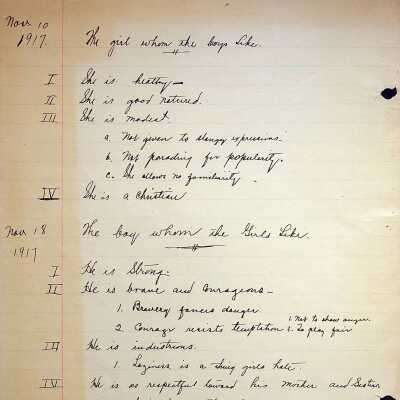 Nov 10
1917. The girl whom the boys like.
I She is healthy—
II She is good natured.
III She is modest.
a. Not given to slangy expressions.
b. Not parading for popularity.
c. She allows no familiarity.
IV She is a Christian
Nov 18 The boy whom the Girls Like.
1917
I He is Strong.
II He is brave and courageous—
1. Bravery faces danger
2. Courage resists temptation 1. Not to show anger
2. To play fair
III He is industrious.
1. Laziness is a thing girls hate.
IV He is as respectful toward his Mother and Sister